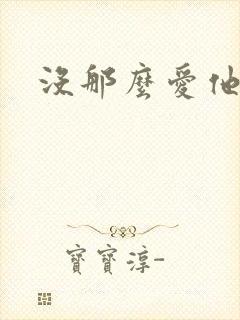 沒那麼愛他
寶寶淳-